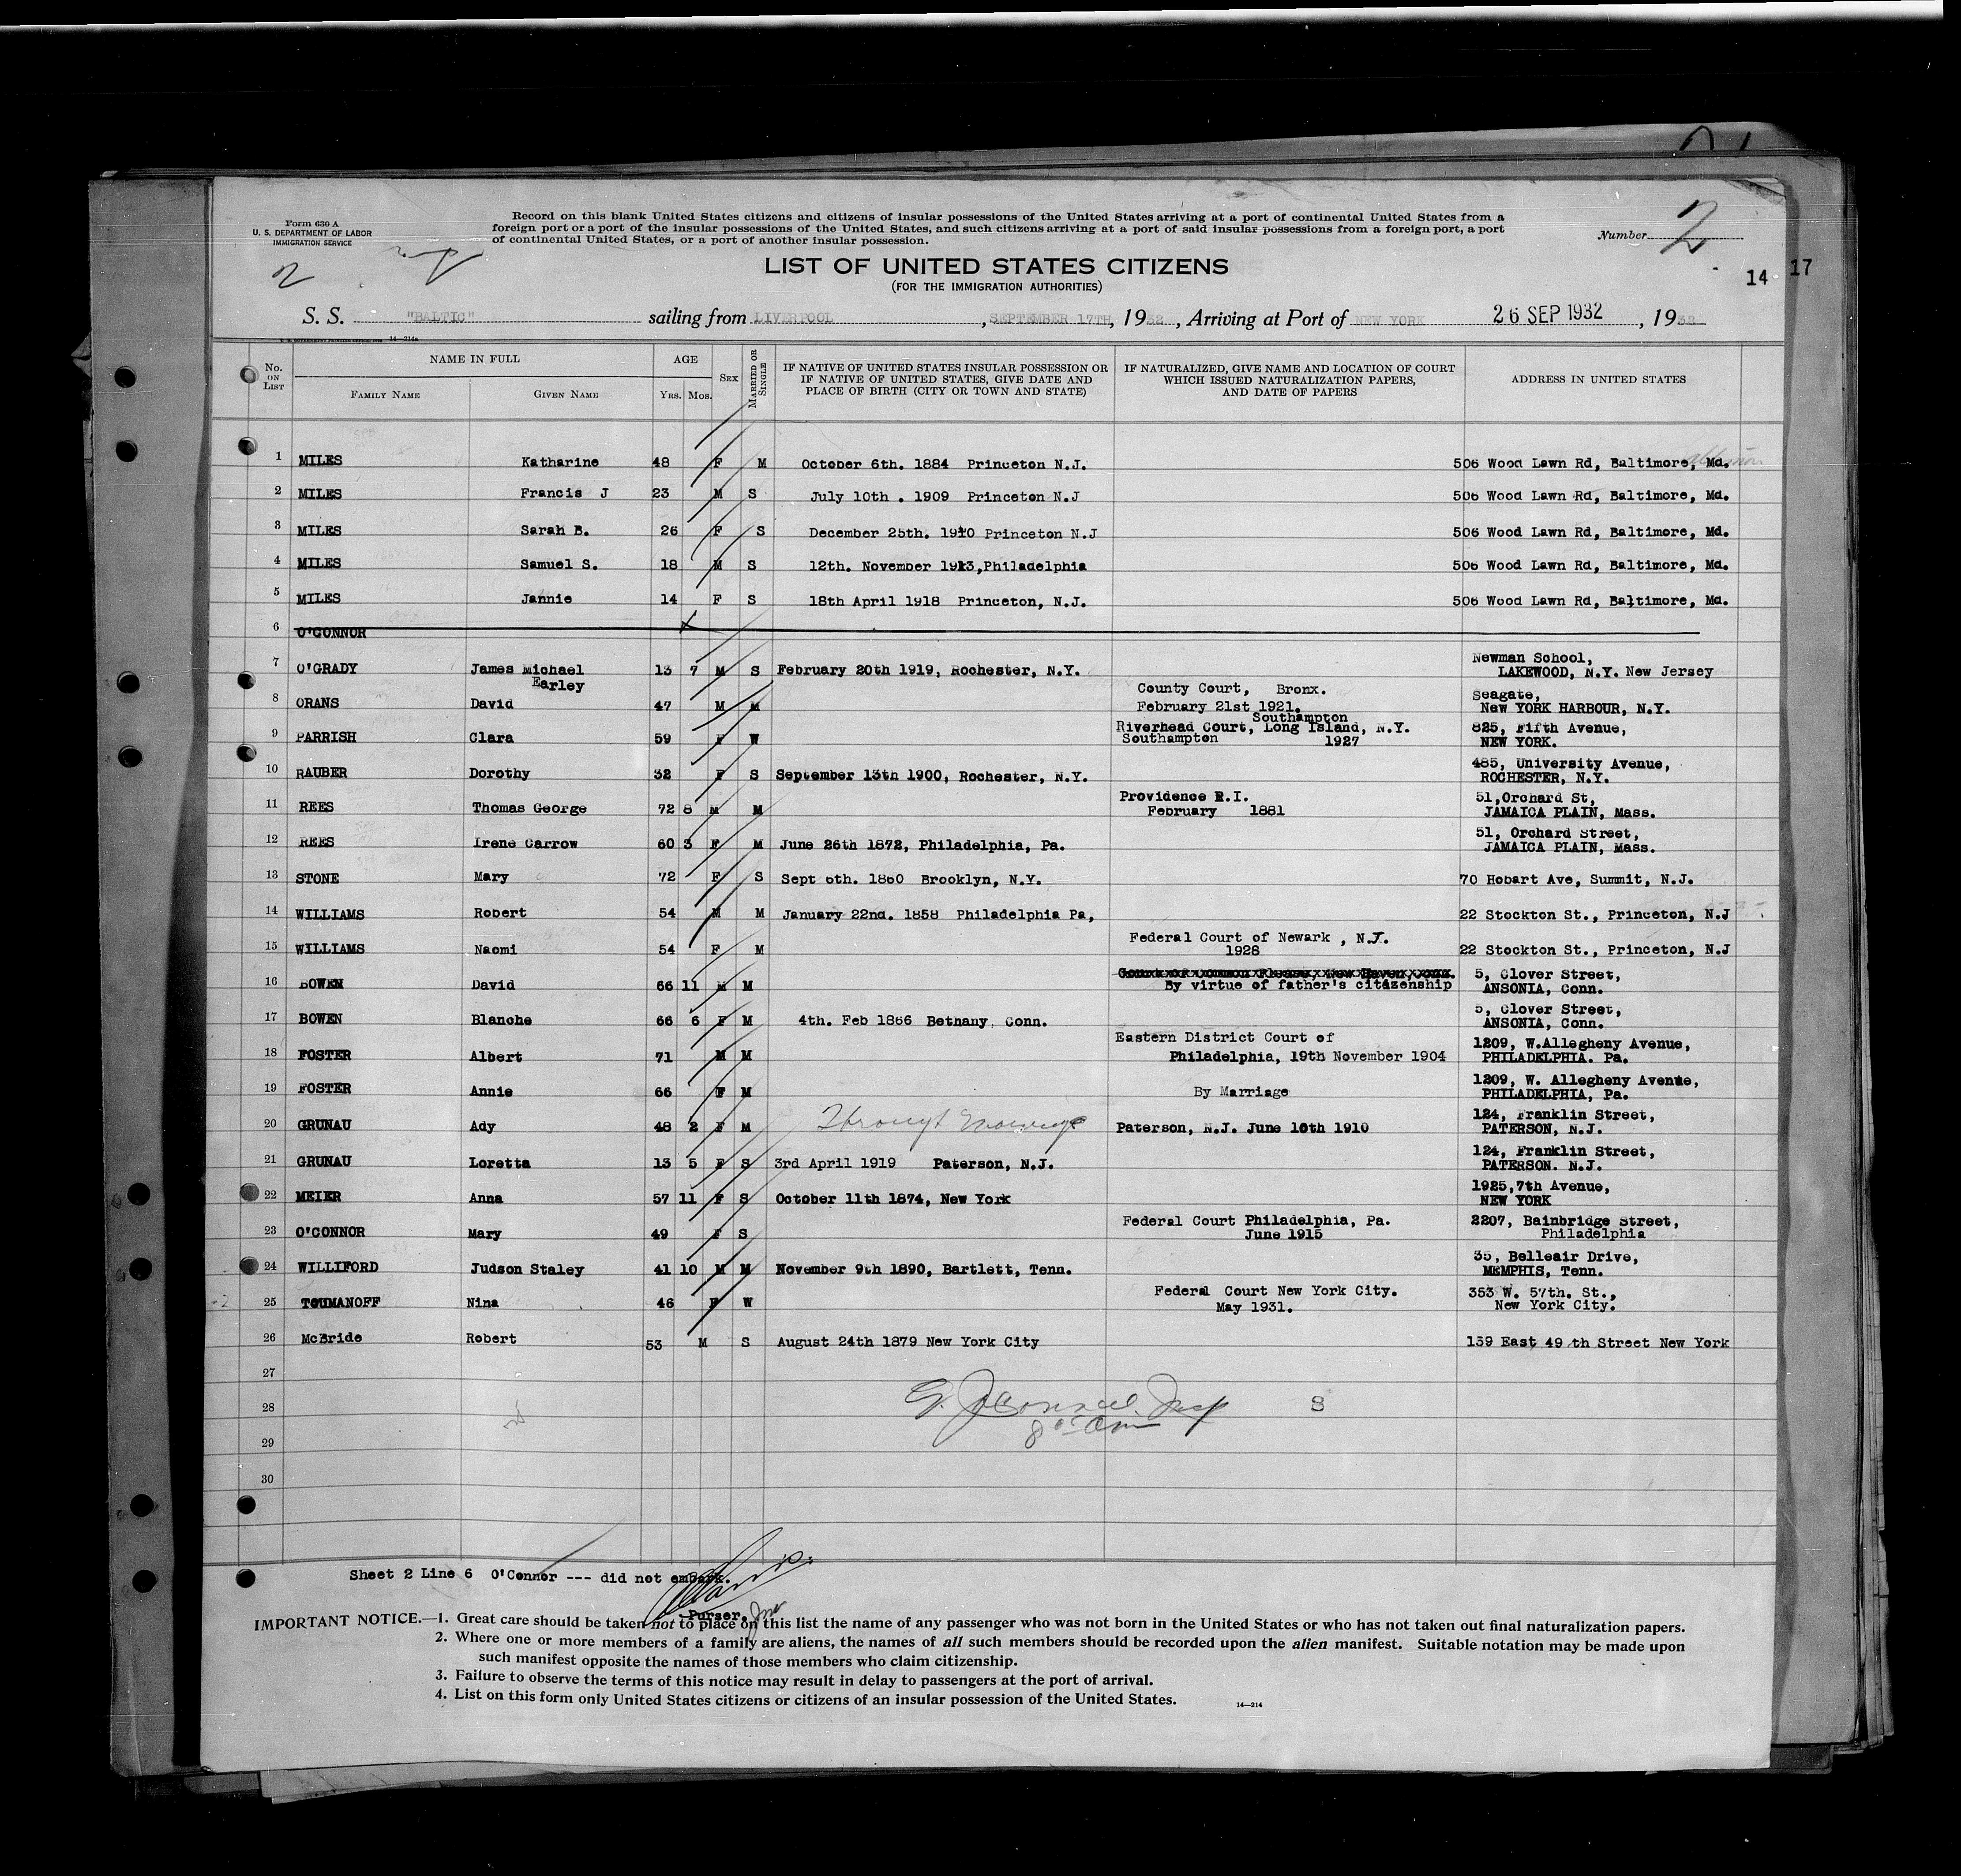 Form 630 A
U. S. DEPARTMENT OF LABOR
IMMIGRATION SERVICE
Record on this blank United States citizens and citizens of insular possessions of the United States arriving at a port of continental United States from a
foreign port or a port of the insular possessions of the United States, and such citizens arriving at a port of said insular possessions from a foreign port, a port
of continental United States, or a port of another insular possession.
Number 2
2
14 17
LIST OF UNITED STATES CITIZENS
(FOR THE IMMIGRATION AUTHORITIES)
S. S. "BALTIC" sailing from LIVERPOOL, SEPTEMBER 17TH, 1932, Arriving at Port of NEW YORK 26 SEP 1932, 1932
No. ON LIST NAME IN FULL AGE SEX MARRIED OR SINGLE IF NATIVE OF UNITED STATES INSULAR POSSESSION OR IF NATIVE OF UNITED STATES, GIVE DATE AND PLACE OF BIRTH (CITY OR TOWN AND STATE) IF NATURALIZED, GIVE NAME AND LOCATION OF COURT WHICH ISSUED NATURALIZATION PAPERS, AND DATE OF PAPERS ADDRESS IN UNITED STATES
FAMILY NAME GIVEN NAME YRS. MOS.
1 MILES Katharine 48 F M October 6th. 1884 Princeton N.J. 506 Wood Lawn Rd, Baltimore, Md.
2 MILES Francis J 23 M S July 10th . 1909 Princeton N.J 506 Wood Lawn Rd, Baltimore, Md.
3 MILES Sarah B. 26 F S December 25th. 1910 Princeton N.J 506 Wood Lawn Rd, Baltimore, Md.
4 MILES Samuel S. 18 M S 12th. November 1913, Philadelphia 506 Wood Lawn Rd, Baltimore, Md.
5 MILES Jannie 14 F S 18th April 1918 Princeton, N.J. 506 Wood Lawn Rd, Baltimore, Md.
6 O'CONNOR
7 O'GRADY James Michael Earley 13 7 M S February 20th 1919, Rochester, N.Y. Newman School, LAKEWOOD, N.Y. New Jersey
8 ORANS David 47 M M County Court, Bronx. February 21st 1921. Seagate, New YORK HARBOUR, N.Y.
9 PARRISH Clara 59 F W Southampton Riverhead Court, Long Island, N.Y. Southampton 1927 825, Fifth Avenue, NEW YORK.
10 RAUBER Dorothy 32 F S September 13th 1900, Rochester, N.Y. 485, University Avenue, ROCHESTER, N.Y.
11 REES Thomas George 72 8 M M Providence R.I. February 1881 51,Orchard St, JAMAICA PLAIN, Mass.
12 REES Irene Carrow 60 3 F M June 26th 1872, Philadelphia, Pa. 51, Orchard Street, JAMAICA PLAIN, Mass.
13 STONE Mary 72 F S Sept 6th. 1860 Brooklyn, N.Y. 70 Hobart Ave, Summit, N.J.
14 WILLIAMS Robert 54 M M January 22nd. 1858 Philadelphia Pa, 22 Stockton St., Princeton, N.J
15 WILLIAMS Naomi 54 F M Federal Court of Newark , N.J. 1928 22 Stockton St., Princeton, N.J
16 BOWEN David 66 11 M M By virtue of father's citizenship 5, Clover Street, ANSONIA, Conn.
17 BOWEN Blanche 66 6 F M 4th. Feb 1866 Bethany, Conn. 5, Clover Street, ANSONIA, Conn.
18 FOSTER Albert 71 M M Eastern District Court of Philadelphia, 19th November 1904 1209, W.Allegheny Avenue, PHILADELPHIA. Pa.
19 FOSTER Annie 66 F M By Marriage 1209, W. Allegheny Avenue, PHILADELPHIA, Pa.
20 GRUNAU Ady 48 2 F M Through Marriage Paterson, N.J. June 16th 1910 124, Franklin Street, PATERSON, N.J.
21 GRUNAU Loretta 13 5 F S 3rd April 1919 Paterson, N.J. 124, Franklin Street, PATERSON. N.J.
22 MEIER Anna 57 11 F S October 11th 1874, New York 1925,7th Avenue, NEW YORK
23 O'CONNOR Mary 49 F S Federal Court Philadelphia, Pa. June 1915 2207, Bainbridge Street, Philadelphia
24 WILLIFORD Judson Staley 41 10 M M November 9th 1890, Bartlett, Tenn. 35, Belleair Drive, MEMPHIS, Tenn.
25 TOUMANOFF Nina 46 F W Federal Court New York City. May 1931. 353 W. 57th. St., New York City.
26 McBride Robert 53 M S August 24th 1879 New York City 139 East 49 th Street New York
27
28 S
29
30
Sheet 2 Line 6 O'Connor --- did not embark.
Purser,
IMPORTANT NOTICE.—1. Great care should be taken not to place on this list the name of any passenger who was not born in the United States or who has not taken out final naturalization papers.
2. Where one or more members of a family are aliens, the names of all such members should be recorded upon the alien manifest. Suitable notation may be made upon
such manifest opposite the names of those members who claim citizenship.
3. Failure to observe the terms of this notice may result in delay to passengers at the port of arrival.
4. List on this form only United States citizens or citizens of an insular possession of the United States.
14—214